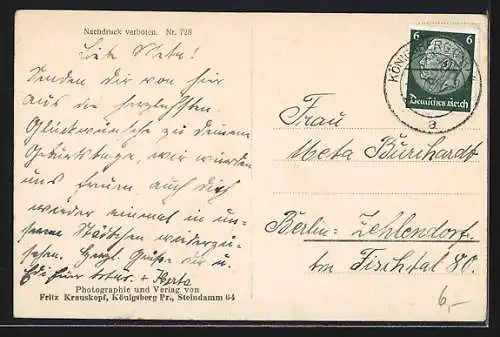 Nachdruck verboten. Nr. 728
Liebe Meta!
Senden dir von hier
aus die herzlichsten
Glückwünsche zu deinem
Geburtstage, wir würden
uns freuen auch dich
wieder einmal in un-
serem Städtchen wiederzu-
sehen. Herzl. Grüße dir u.
+ Herta
Photographie und Verlag von
Fritz Krauskopf, Königsberg Pr., Steindamm 64
6 6
Deutsches Reich
KÖNIGSBERG
a
Frau
Meta Burchardt
Berlin-Zehlendorf.
Im Fischtal 80.
6,-